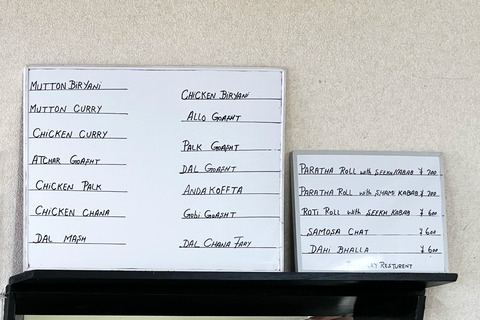 MUTTON BIRYANI
MUTTON CURRY
CHICKEN CURRY
ATCHAR GOASHT
CHICKEN PALK
CHICKEN CHANA
DAL MASH
CHICKEN BIRYANI
ALLO GOASHT
PALK GOASHT
DAL GOASHT
ANDA KOFFTA
GOBI GOASHT
DAL CHANA FARY
PARATHA ROLL with SEEKH KABAB ¥ 700
PARATHA ROLL with SHAMI KABAB ¥ 700
ROTI ROLL with SEEKH KABAB ¥ 600
SAMOSA CHAT ¥ 600
DAHI BHALLA ¥ 600
RESTURENT